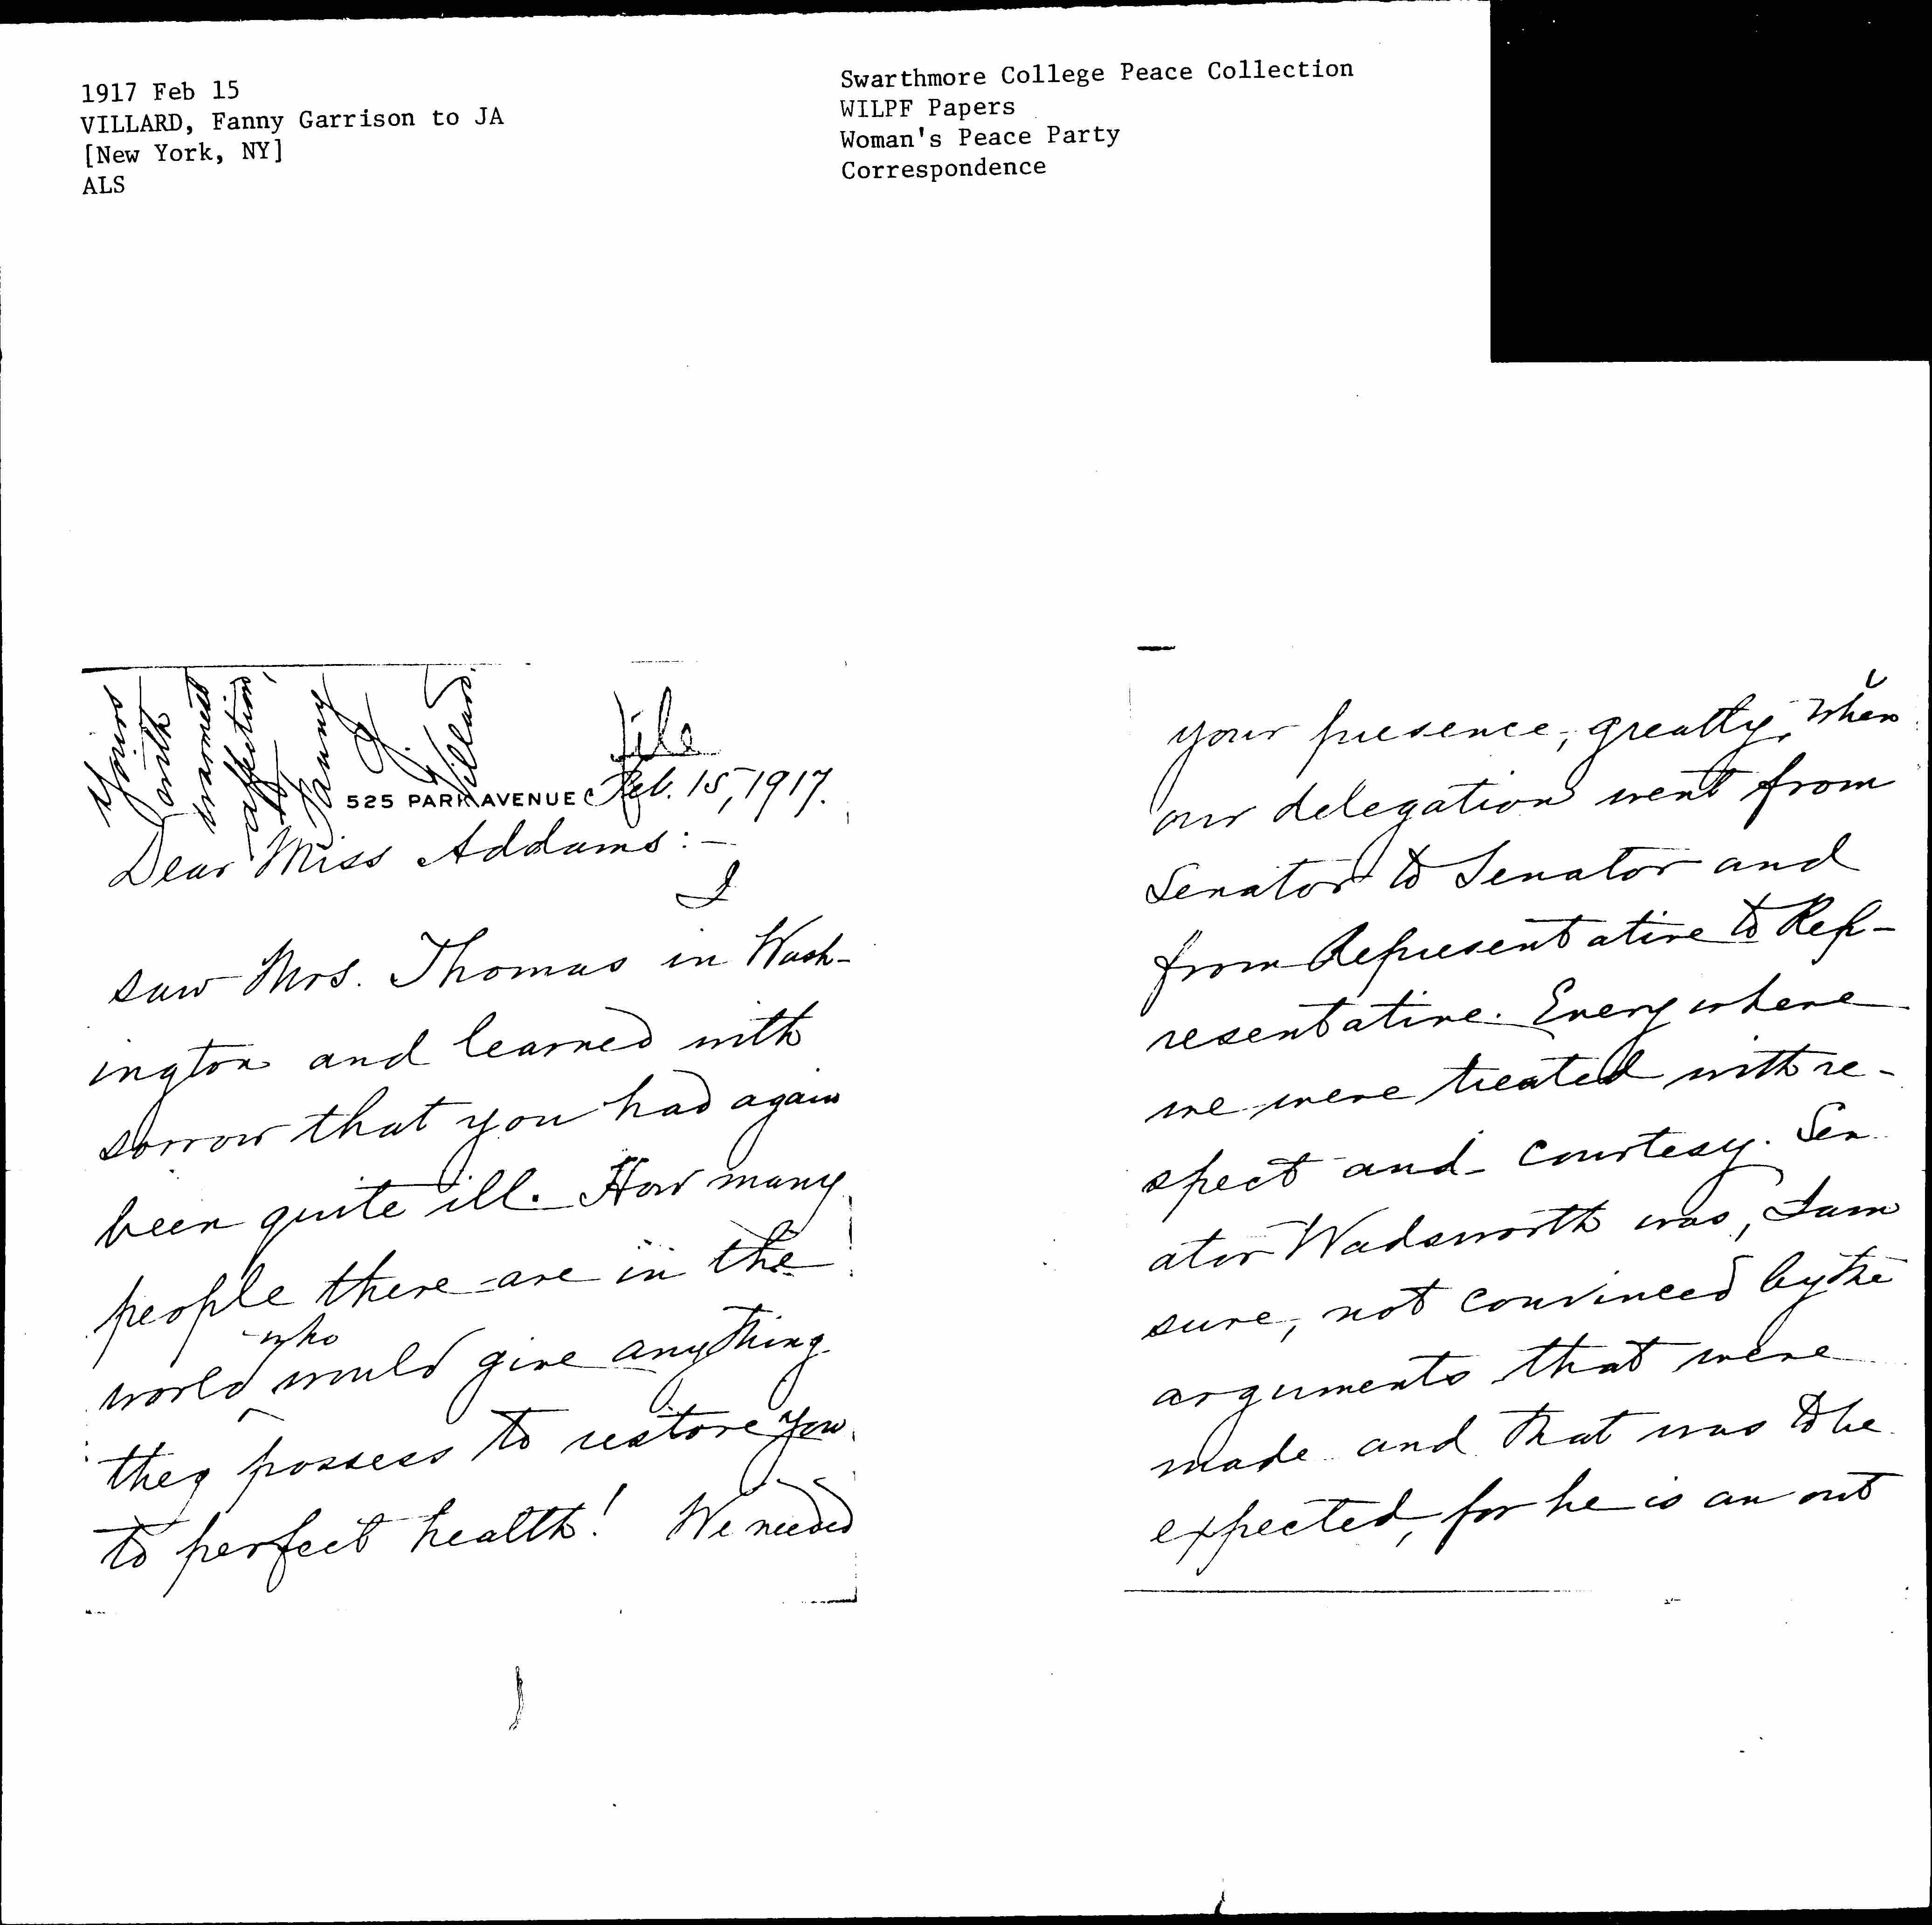 1917 Feb 15
VILLARD, Fanny Garrison to JA
[New York, NY]
ALS
Swarthmore College Peace Collection
WILPF Papers
Woman's Peace Party
Correspondence
Yours
with
warmest
affection,
Fanny
G.
Villard.
File
525 PARK AVENUE Feb. 15, 1917.
Dear Miss Addams:—
I
saw Mrs. Thomas in Wash-
ington and learned with
sorrow that you had again
been quite ill. How many
people there are in the
who
world would give anything
they possess to restore you
to perfect health! We needed
your presence, greatly, when
our delegation went from
Senator to Senator and
from Representative to Rep-
resentative. Everywhere
we were treated with re-
spect and courtesy. Sen-
ator Wadsworth was, I am
sure, not convinced by the
arguments that were
made and that was to be
expected, for he is an out